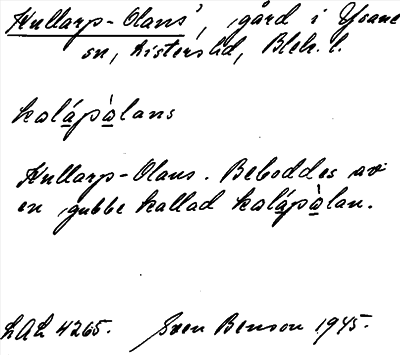 Kullarp-Olans', gård i Ysane
sn, Listers hd, Blek. l.
kolápàlans
Kullarp-Olans. Beboddes av
en gubbe kallad kolápàlan.
LAL 4265. Sven Benson 1945.